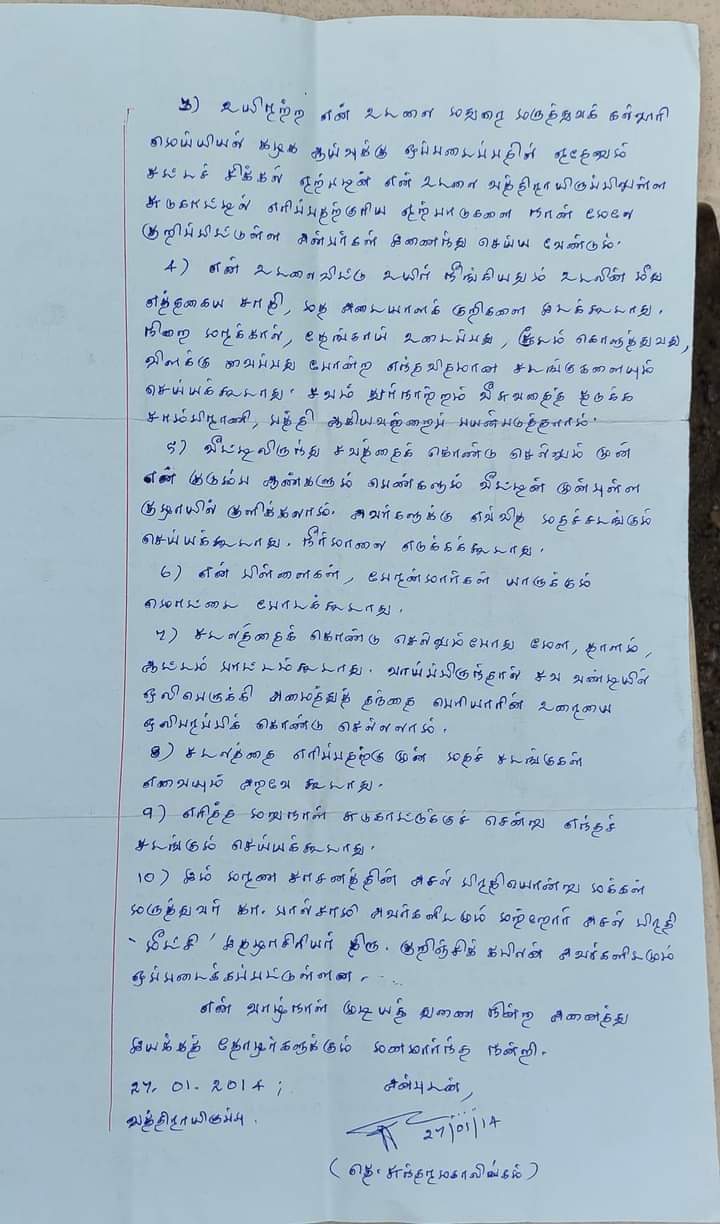 3) உயிரற்ற என் உடலை மதுரை மருத்துவக் கல்லூரி
மெய்யியல் கழக ஆய்வுக்கு ஒப்படைப்பதில் ஏதேனும்
சட்டச் சிக்கல் ஏற்படின் என் உடலை வத்திராயிருப்பிலுள்ள
சுடுகாட்டில் எரிப்பதற்குரிய ஏற்பாடுகளை நான் மேலே
குறிப்பிட்டுள்ள அன்பர்கள் இணைந்து செய்ய வேண்டும்.
4) என் உடலைவிட்டு உயிர் நீங்கியதும் உடலின் மீது
எத்தகைய சாதி, மத அடையாளக் குறிகளை இடக்கூடாது.
நிறை மரக்கால், தேங்காய் உடைப்பது, சூடம் கொளுத்துவது,
விளக்கு வைப்பது போன்ற எந்தவிதமான சடங்குகளையும்
செய்யக்கூடாது. சவம் துர்நாற்றம் வீசுவதைத் தடுக்க
சாம்பிராணி, பத்தி ஆகியவற்றைப் பயன்படுத்தலாம்.
5) வீட்டிலிருந்து சவத்தைக் கொண்டு செல்லும் முன்
என் குடும்ப ஆண்களும் பெண்களும் வீட்டின் முன்புள்ள
குழாயில் குளிக்கலாம். அவர்களுக்கு எவ்வித மதச்சடங்கும்
செய்யக்கூடாது. நீர்மாலை எடுக்கக்கூடாது.
6) என் பிள்ளைகள், பேரன்மார்கள் யாருக்கும்
மொட்டை போடக்கூடாது.
7) சடலத்தைக் கொண்டு செல்லும்போது மேள, தாளம்,
ஆட்டம் பாட்டம்கூடாது. வாய்ப்பிருந்தால் சவ வண்டியில்
ஒலிபெருக்கி அமைத்துத் தந்தை பெரியாரின் உரையை
ஒலிபரப்பிக் கொண்டு செல்லலாம்.
8) சடலத்தை எரிப்பதற்கு முன் மதச் சடங்குகள்
எவையும் அறவே கூடாது.
9) எரித்த மறுநாள் சுடுகாட்டுக்குச் சென்று எந்தச்
சடங்கும் செய்யக்கூடாது.
10) இம் மரண சாசனத்தின் அசல் பிரதியொன்று மக்கள்
மருத்துவர் கா. பால்சாமி அவர்களிடமும் மற்றோர் அசல் பிரதி
'மீட்சி' இதழாசிரியர் திரு. குறிஞ்சிக் கபிலன் அவர்களிடமும்
ஒப்படைக்கப்பட்டுள்ளன.
என் வாழ்நாள் முடியத் துணை நின்ற அனைத்து
இயக்கத் தோழர்களுக்கும் மனமார்ந்த நன்றி.
27.01.2014; அன்புடன்,
வத்திராயிருப்பு. 27/01/14
(தெ. சுந்தரமகாலிங்கம்)